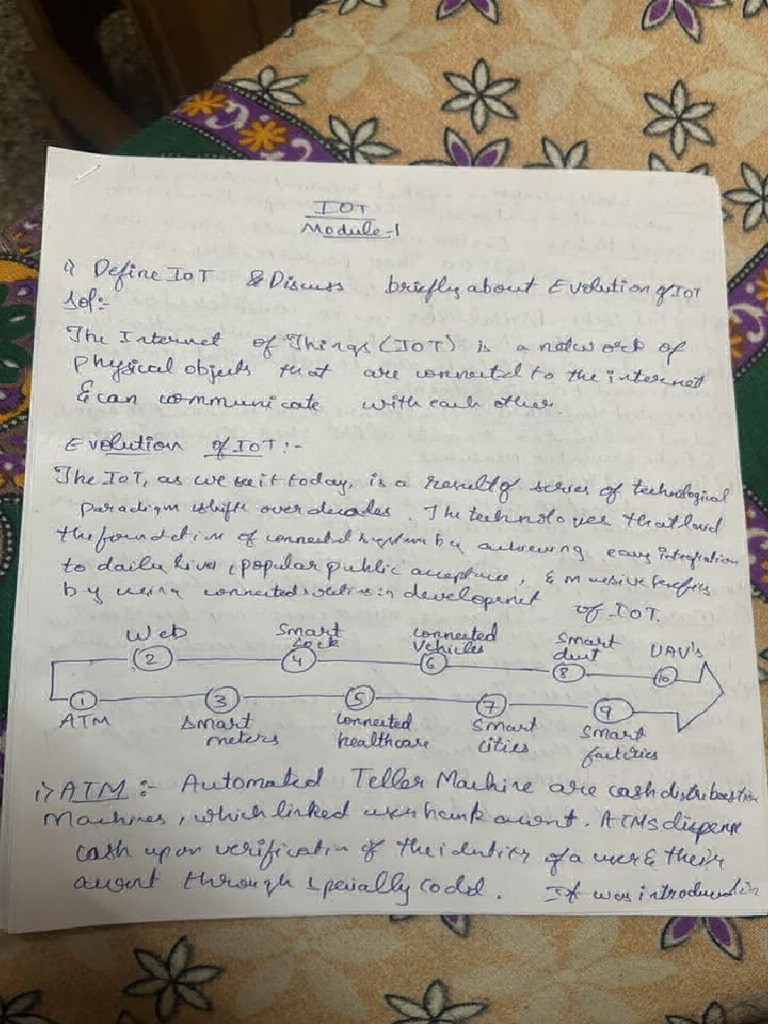 IOT
Module-1
1) Define IoT & Discuss briefly about Evolution of IOT
Sol:-
The Internet of Things (IOT) is a network of
physical objects that are connected to the internet
& can communicate with each other
Evolution of IOT:-
The IoT, as we see it today, is a result of series of technological
paradigm shifts over decades. The technologies that laid
the foundation of connected systems by achieving easy integration
to daily lives, popular public acceptance, & massive benefits
by using connected solutions in development of IOT.
Web Smart Lock Connected Vehicles Smart dust UAV's
2 4 6 8 10
1 3 5 7 9
ATM Smart meters Connected healthcare Smart cities Smart factories
i) ATM :- Automated Teller Machine are cash distribution
Machines, which linked user bank account. ATMs dispense
cash upon verification of the identity of a user & their
account through specially coded. It was introduced in